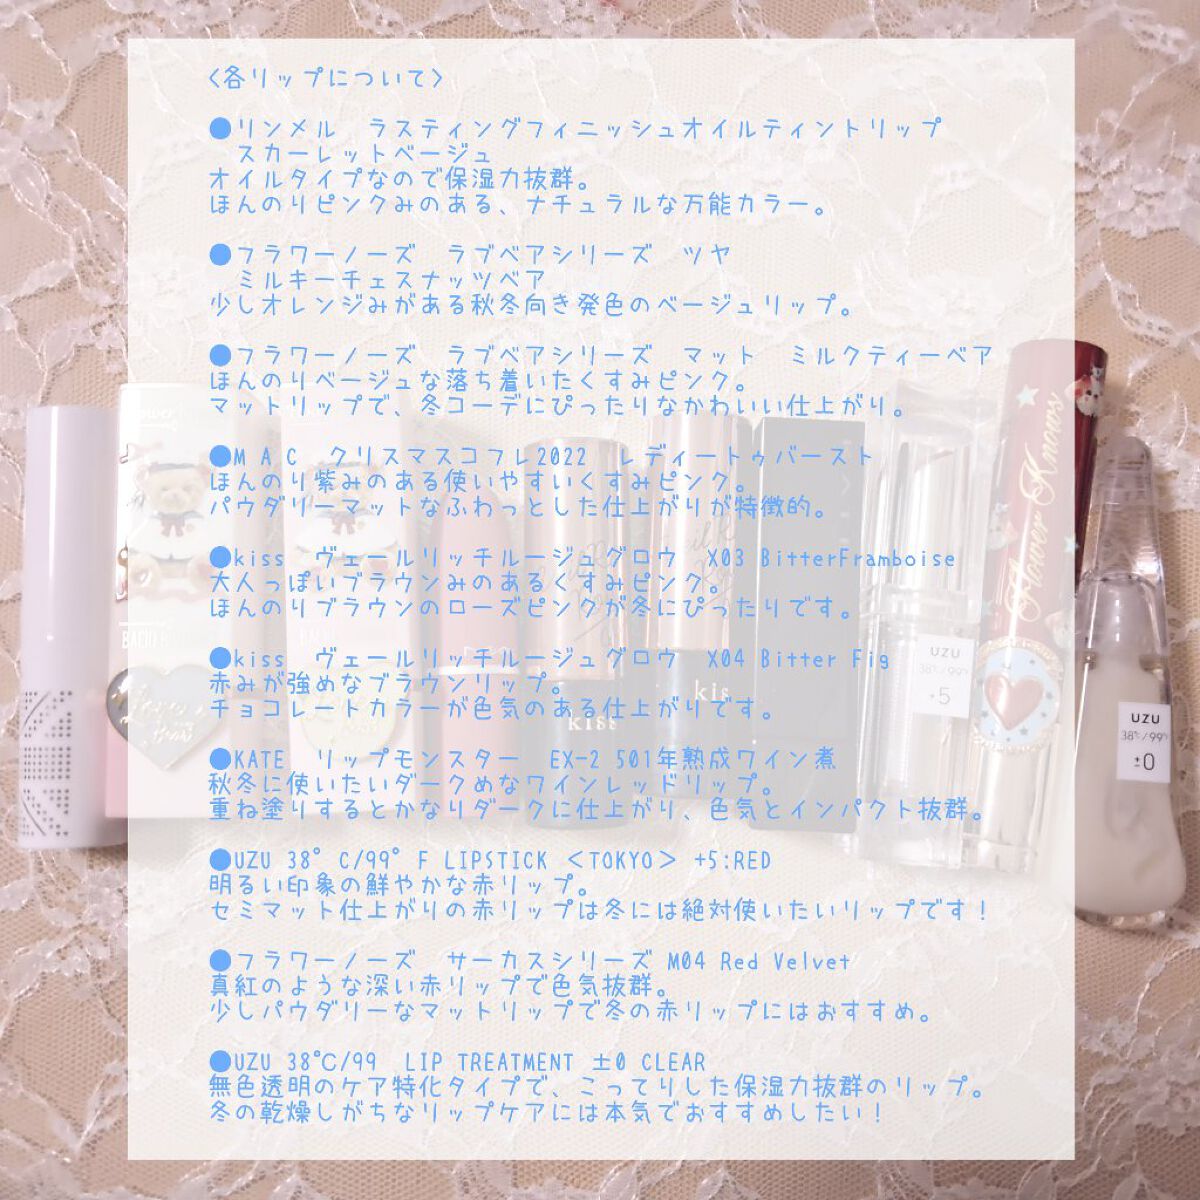 <各リップについて>
●リンメル　ラスティングフィニッシュオイルティントリップ
　スカーレットベージュ
オイルタイプなので保湿力抜群。
ほんのりピンクみのある、ナチュラルな万能カラー。
●フラワーノーズ　ラブベアシリーズ　ツヤ
　ミルキーチェスナッツベア
少しオレンジみがある秋冬向き発色のベージュリップ。
●フラワーノーズ　ラブベアシリーズ　マット　ミルクティーベア
ほんのりベージュな落ち着いたくすみピンク。
マットリップで、冬コーデにぴったりなかわいい仕上がり。
●MAC　クリスマスコフレ2022　レディートゥバースト
ほんのり紫みのある使いやすいくすみピンク。
パウダリーマットなふわっとした仕上がりが特徴的。
●kiss　ヴェールリッチルージュグロウ　X03 BitterFramboise
大人っぽいブラウンみのあるくすみピンク。
ほんのりブラウンのローズピンクが冬にぴったりです。
●kiss　ヴェールリッチルージュグロウ　X04 Bitter Fig
赤みが強めなブラウンリップ。
チョコレートカラーが色気のある仕上がりです。
●KATE　リップモンスター　EX-2 501年熟成ワイン煮
秋冬に使いたいダークめなワインレッドリップ。
重ね塗りするとかなりダークに仕上がり、色気とインパクト抜群。
●UZU 38°C/99°F LIPSTICK ＜TOKYO＞ +5:RED
明るい印象の鮮やかな赤リップ。
セミマット仕上がりの赤リップは冬には絶対使いたいリップです！
●フラワーノーズ　サーカスシリーズ M04 Red Velvet
真紅のような深い赤リップで色気抜群。
少しパウダリーなマットリップで冬の赤リップにはおすすめ。
●UZU 38℃/99　LIP TREATMENT ±0 CLEAR
無色透明のケア特化タイプで、こってりした保湿力抜群のリップ。
冬の乾燥しがちなリップケアには本気でおすすめしたい！
Flower Knows
kiss
kis
UZU
38℃/99℉
+5
UZU
38℃/99℉
±0